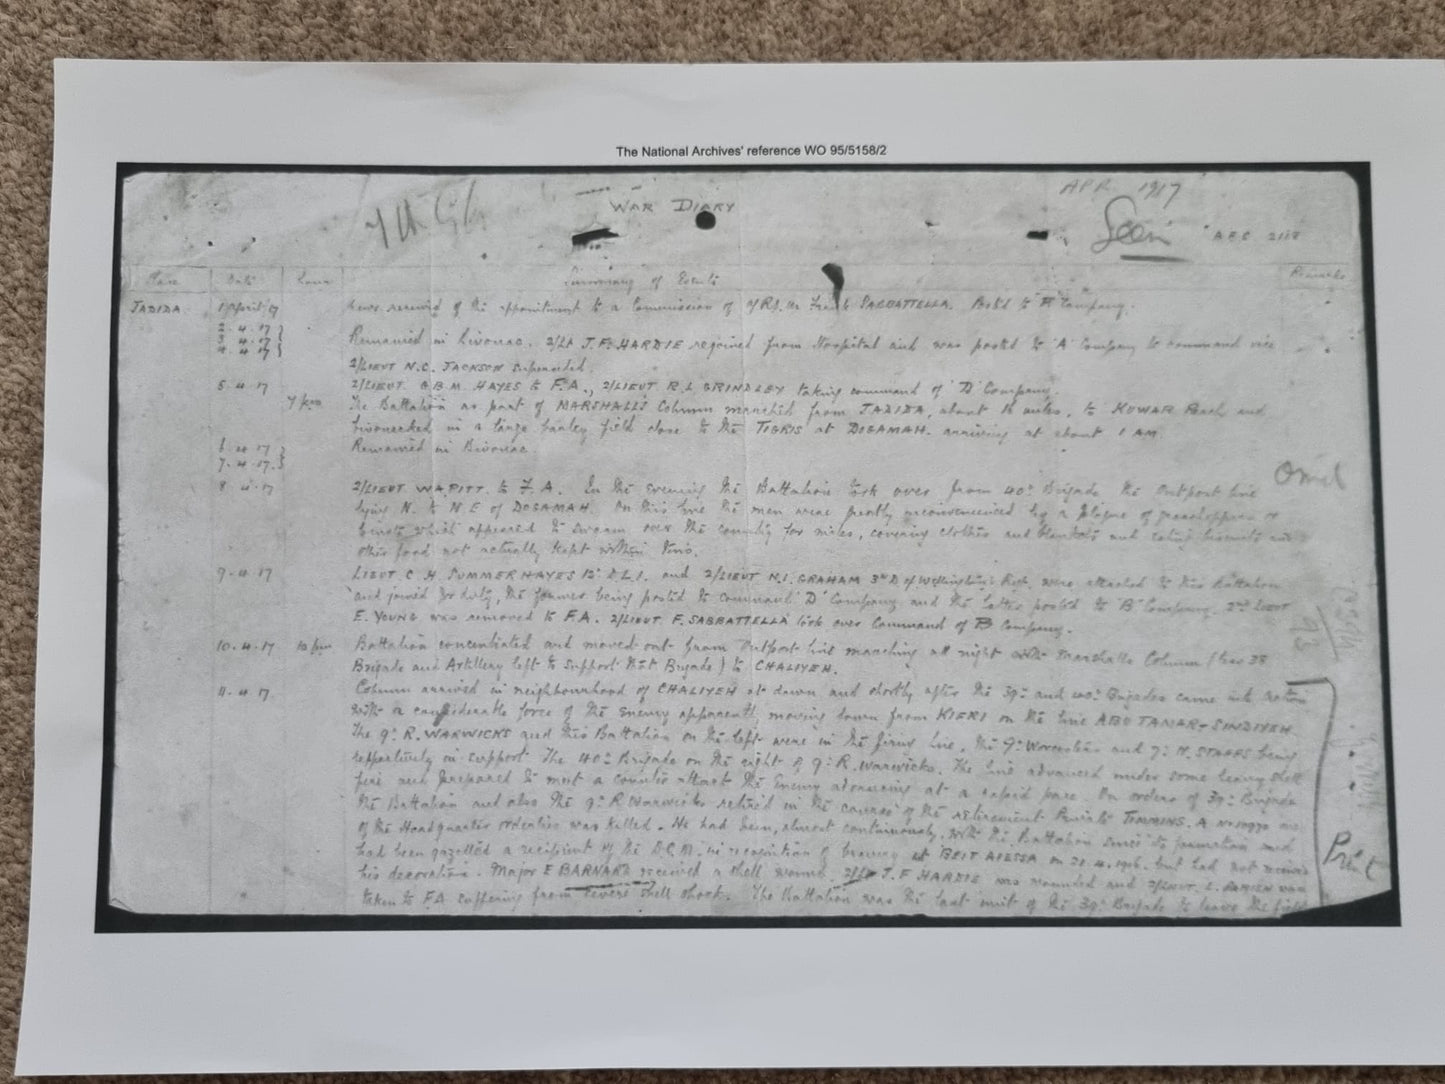 The National Archives' reference WO 95/5158/2
APR 1917
WAR DIARY
Seen A.F.C. 2118
Place Date Hour Summary of Events Remarks
JADIDA 1 April 17 News received of the appointment to a Commission of SABBATTELLA. Posted to Company.
2.4.17
3.4.17 Remained in bivouac. 2/Lt J.F. HARDIE rejoined from Hospital and was posted to 'A' Company to command vice
4.4.17
2/LIEUT N.C. JACKSON superseded.
5.4.17 2/LIEUT G.B.M. HAYES to F.A., 2/LIEUT R.L GRINDLEY taking command of 'D' Company.
7 pm The Battalion as part of MARSHALL'S Column marched from JADIDA, about 16 miles, to KUWAR Reach and
bivouacked in a large barley field close to the TIGRIS at DOGAMAH. arriving at about 1 AM.
6.4.17 Remained in Bivouac.
7.4.17
8.4.17 2/LIEUT W.A. PITT to F.A. In the evening the Battalion took over from 40th Brigade the Outpost line
lying N. to N E of DOGAMAH. On this line the men were greatly inconvenienced by a plague of grasshoppers or
locusts which appeared to swarm over the country for miles, covering clothes and blankets and eating biscuits and
other food not actually kept within tins.
9.4.17 LIEUT C. H. SUMMERHAYES D.L.I. and 2/LIEUT N.I. GRAHAM 3rd D of Wellington's Regt. were attached to this Battalion
and joined for duty, the former being posted to command 'D' Company and the latter posted to 'B' Company. 2nd LIEUT
E. YOUNG was removed to F.A. 2/LIEUT F. SABBATTELLA took over Command of B Company.
10.4.17 10 pm Battalion concentrated and moved out from Outpost line marching all night with Marshalls Column (less 38
Brigade and Artillery left to support that Brigade) to CHALIYEH.
11.4.17 Column arrived in neighbourhood of CHALIYEH at dawn and shortly after the 39th and 40th Brigades came into action
with a considerable force of the Enemy apparently moving down from KIFRI on the line ABU TAMAR - SINDIYEH
The 9th R. WARWICKS and this Battalion on the left were in the firing line, the 9th Worcesters and 7th N. STAFFS being
respectively in support. The 40th Brigade on the right of 9th R. Warwicks. The line advanced under some heavy shell
fire and prepared to meet a counter attack the Enemy advancing at a rapid pace. On orders of 39th Brigade
the Battalion and also the 9th R Warwicks retired in the course of the retirement Private TIMMINS. A No 10970 one
of the Headquarter orderlies was killed. He had been, almost continuously, with the Battalion since its formation and
had been gazetted a recipient of the D.C.M. in recognition of bravery at BEIT AIESSA on 21.4.1916. but had not received
his decoration. Major E BARNARD received a shell wound. 2/Lt J.F HARDIE was wounded and 2/LIEUT. L. was
taken to F.A suffering from severe shell shock. The Battalion was the last unit of the 39th Brigade to leave the field
Omit
Print